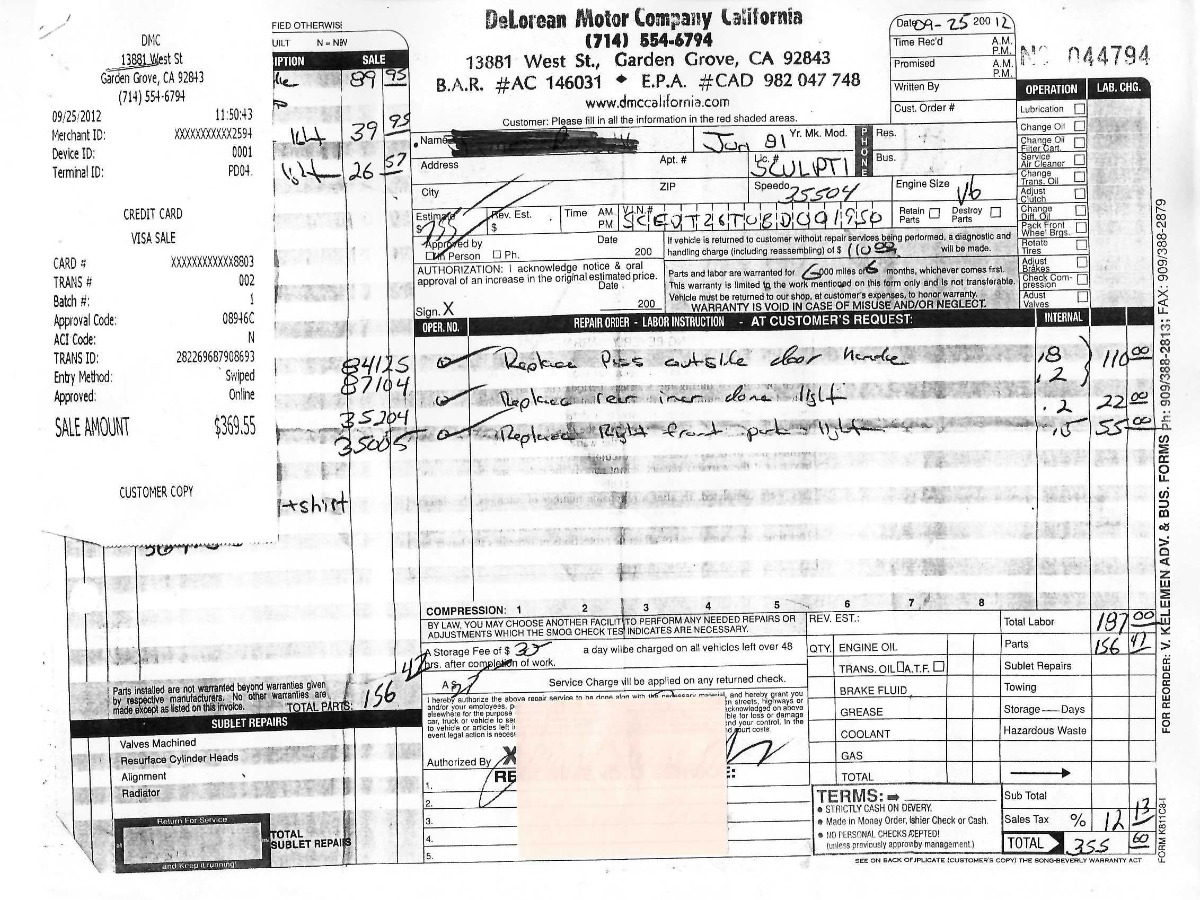 DMC
13881 West St
Garden Grove, CA 92843
(714) 554-6794
09/25/2012 11:50:43
Merchant ID: XXXXXXXXXXX2594
Device ID: 0001
Terminal ID: PD04
CREDIT CARD
VISA SALE
CARD # XXXXXXXXXXXX8803
TRANS # 002
Batch #: 1
Approval Code: 08946C
ACI Code: N
TRANS ID: 282269687908693
Entry Method: Swiped
Approved: Online
SALE AMOUNT $369.55
CUSTOMER COPY
FIED OTHERWISE
UILT N = NEW
IPTION SALE
89 95
light 39 95
light 26 57
t-shirt
DeLorean Motor Company California
(714) 554-6794
13881 West St., Garden Grove, CA 92843
B.A.R. #AC 146031 ◆ E.P.A. #CAD 982 047 748
www.dmccalifornia.com
Customer: Please fill in all the information in the red shaded areas.
Date 09-25 200 12
Time Rec'd A.M. P.M.
Promised A.M. P.M.
Written By
Cust. Order #
No 044794
OPERATION LAB. CHG.
Lubrication
Change Oil
Change Oil Filter Cart.
Service Air Cleaner
Change Trans. Oil
Adjust Clutch
Change Diff. Oil
Pack Front Wheel Brgs.
Rotate Tires
Adjust Brakes
Check Compression
Adjust Valves
Name Jun 81 Yr. Mk. Mod. PHONE Res.
Address Apt. # Lic. # SCULPT1 Bus.
City ZIP Speedo 35504 Engine Size V6
Estimate $ 255 Rev. Est. $ Time AM PM V.I.N.# SCEDT26T0BD001950 Retain Parts Destroy Parts
Approved by Date
In Person Ph. 200
If vehicle is returned to customer without repair services being performed, a diagnostic and
handling charge (including reassembling) of $ 110 00 will be made.
AUTHORIZATION: I acknowledge notice & oral
approval of an increase in the original estimated price.
Date
Sign. X 200
Parts and labor are warranted for 6000 miles or 6 months, whichever comes first.
This warranty is limited to the work mentioned on this form only and is not transferable.
Vehicle must be returned to our shop, at customer's expenses, to honor warranty.
WARRANTY IS VOID IN CASE OF MISUSE AND/OR NEGLECT.
OPER. NO. REPAIR ORDER - LABOR INSTRUCTION - AT CUSTOMER'S REQUEST: INTERNAL
84125 Replace Pass outside door handle .8 110 00
87104 .2
35204 Replace rear inner dome light .2 22 00
35005 Replaced Right front park light .5 55 00
COMPRESSION: 1 2 3 4 5 6 7 8
BY LAW, YOU MAY CHOOSE ANOTHER FACILITY TO PERFORM ANY NEEDED REPAIRS OR
ADJUSTMENTS WHICH THE SMOG CHECK TEST INDICATES ARE NECESSARY.
REV. EST.:
A Storage Fee of $ 35 a day will be charged on all vehicles left over 48
hrs. after completion of work.
Service Charge will be applied on any returned check.
Authorized By X
1.
2.
3.
4.
5.
QTY. ENGINE OIL
TRANS. OIL A.T.F.
BRAKE FLUID
GREASE
COOLANT
GAS
TOTAL
Total Labor 187 00
Parts 156 47
Sublet Repairs
Towing
Storage — Days
Hazardous Waste
Sub Total
Sales Tax % 12 13
TOTAL 355 60
TERMS:
• STRICTLY CASH ON DEVERY.
• Made in Money Order, Ishier Check or Cash.
• NO PERSONAL CHECKS AEPTED!
(unless previously approvn by management.)
SEE ON BACK OF IPLICATE (CUSTOMER'S COPY) THE SONG-BEVERLY WARRANTY ACT
Parts installed are not warranted beyond warranties given
by respective manufacturers. No other warranties are
made except as listed on this invoice.
TOTAL PARTS: 156 47
SUBLET REPAIRS
Valves Machined
Resurface Cylinder Heads
Alignment
Radiator
Return For Service
and Keep it running!
TOTAL
SUBLET REPAIRS
FOR REORDER: V. KELEMEN ADV. & BUS. FORMS Ph: 909/388-2813; FAX: 909/388-2879
FORM K811C8-I